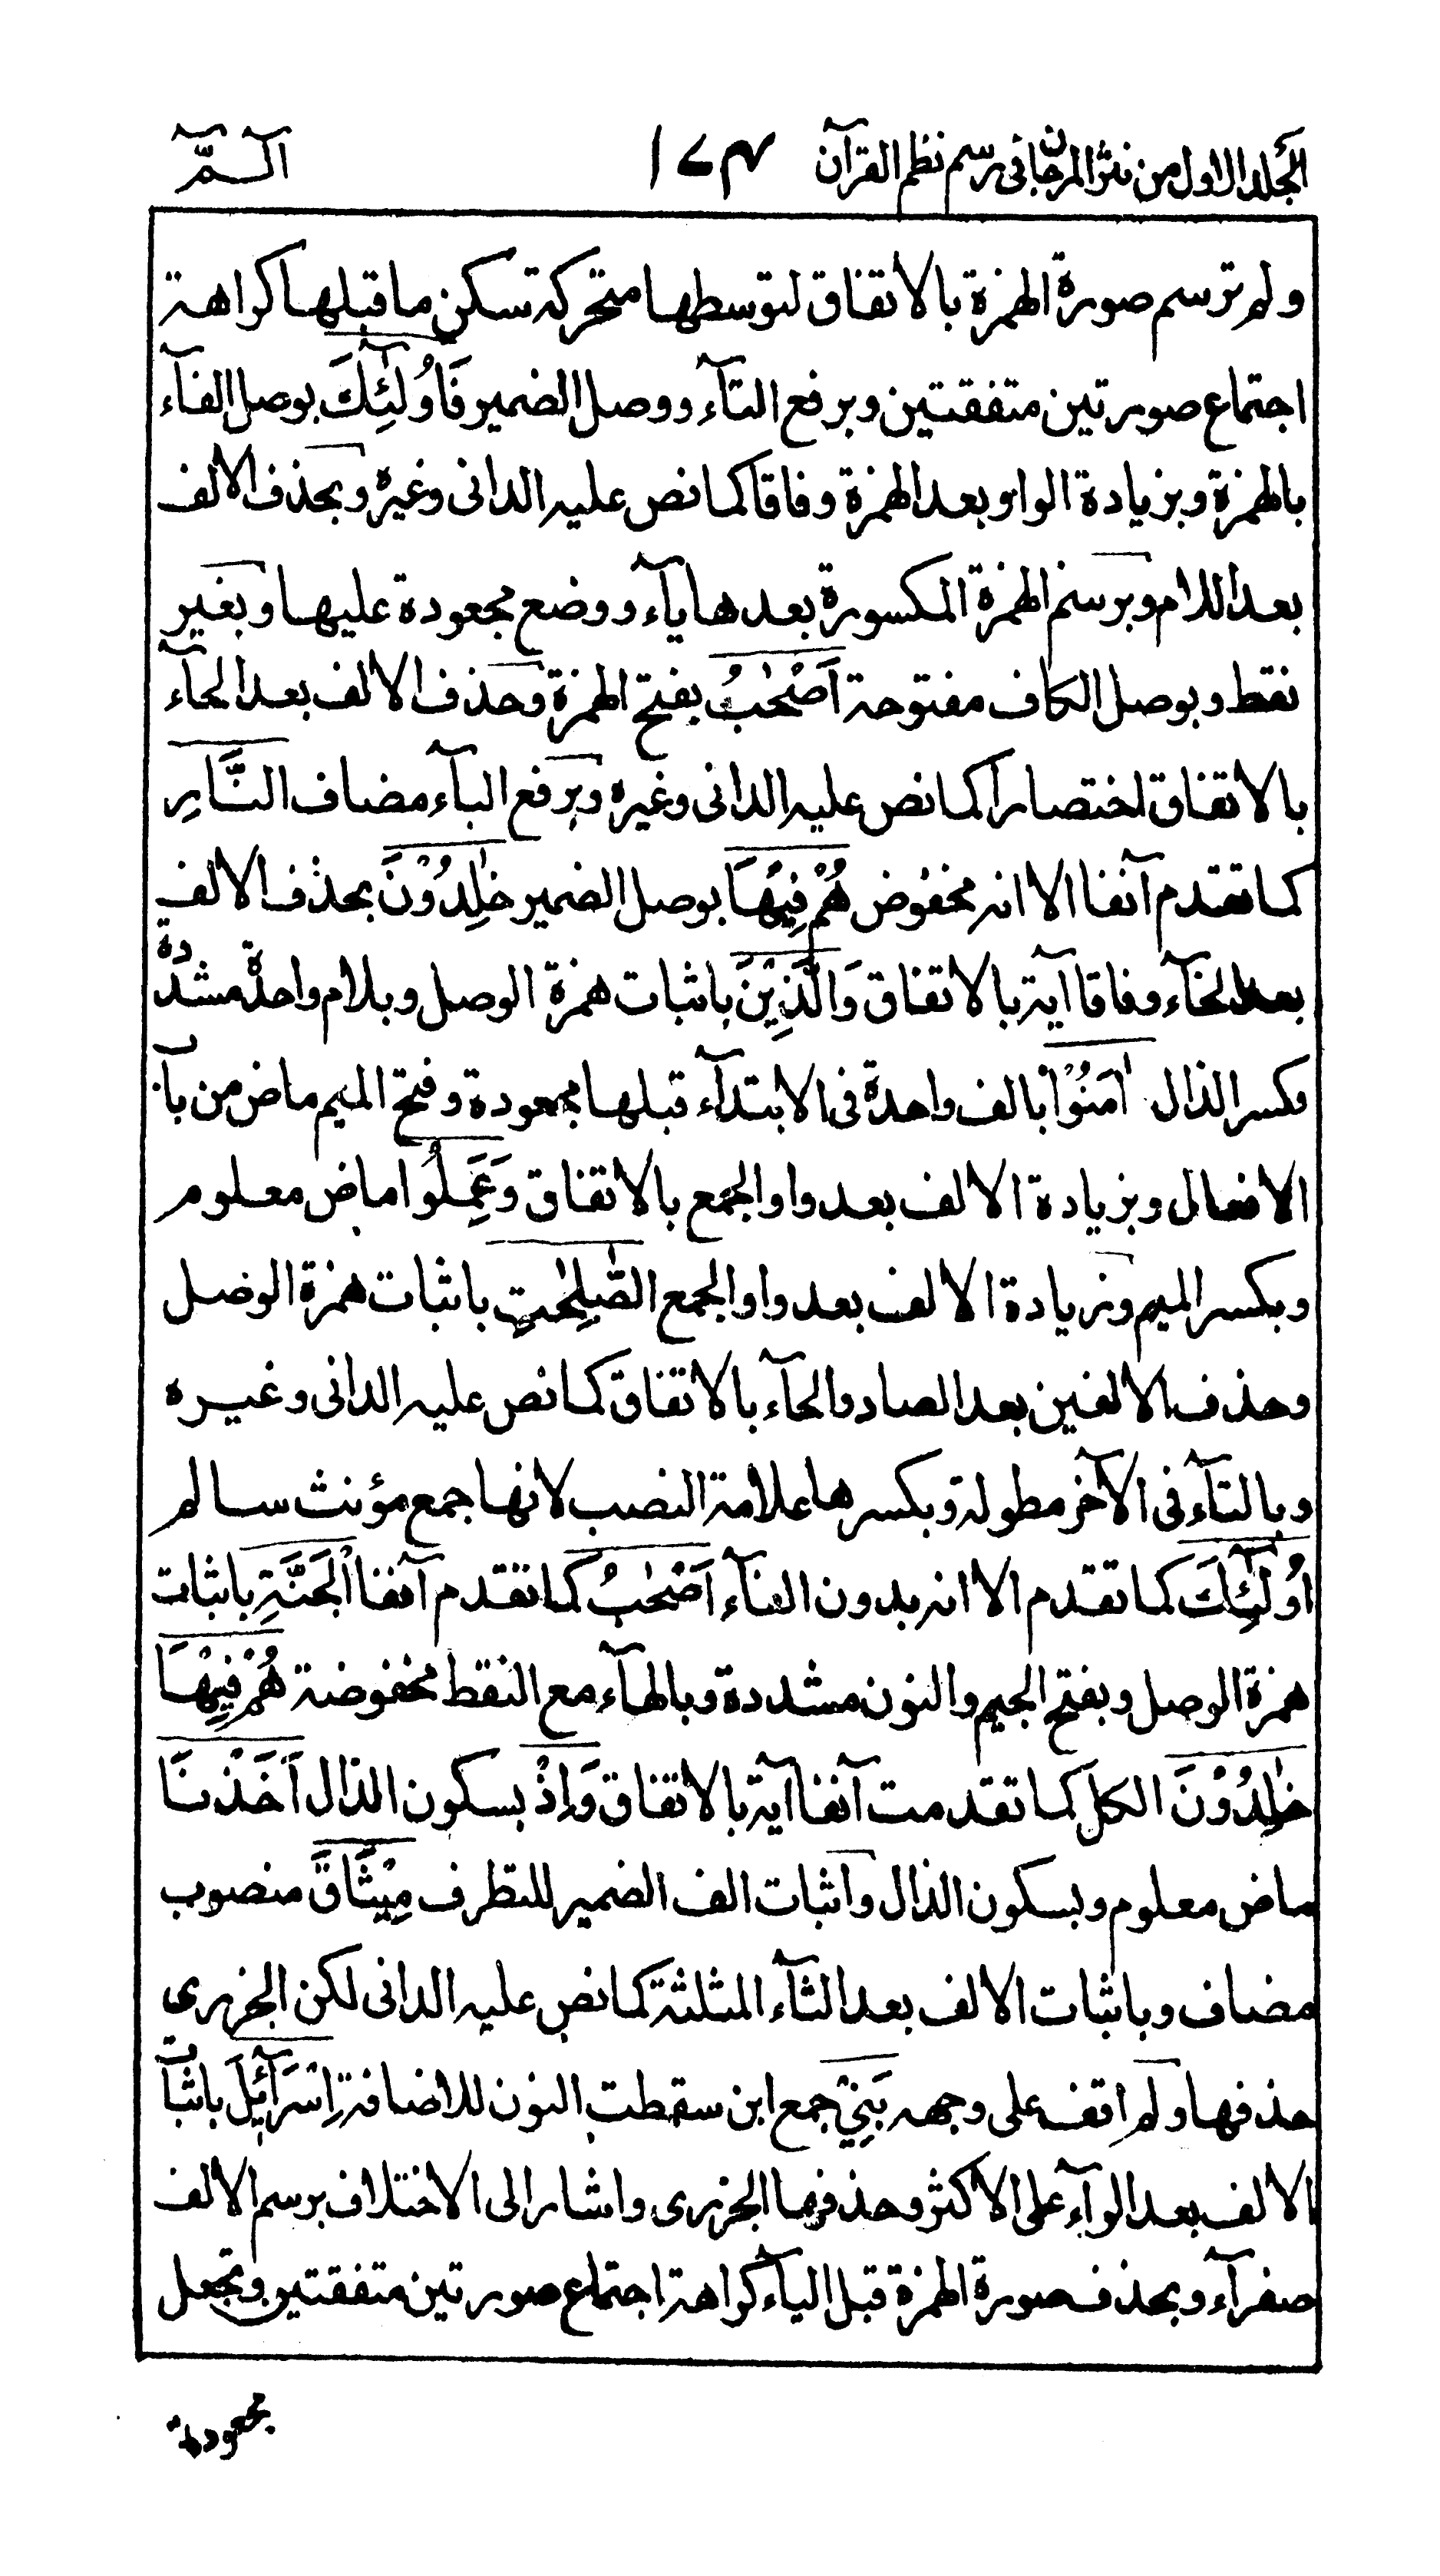 المجلد الاول من نثر المرجان في رسم نظم القرآن ١٧٤ الٓـمّٓ
ولم ترسم صورة الهمزة بالاتفاق لتوسطها متحركة تسكن ما قبلها كراهة
اجتماع صورتين متفقتين وبرفع التآء ووصل الضمير فَاُولٰٓئِكَ بوصل الفآء
بالهمزة وبزيادة الواو بعد الهمزة وفاقا كما نص عليه الدانى وغيره وبحذف الالف
بعد اللام وبرسم الهمزة المكسورة بعدها يآء ووضع مجعودة عليها وبغير
نقط وبوصل الكاف مفتوحة اَصْحٰبُ بفتح الهمزة وحذف الالف بعد الحآء
بالاتفاق اختصارا كما نص عليه الدانى وغيره وبرفع البآء مضاف النَّارِ
كما تقدم آنفا الا انه مخفوض هُمْ فِيْهَا بوصل الضمير خٰلِدُوْنَ بحذف الالف
بعد الخآء وفاقا آية بالاتفاق وَالَّذِيْنَ باثبات همزة الوصل وبلام واحدة مشددة
وكسر الذال اٰمَنُوْا بالف واحدة فى الابتدآء قبلها مجعودة وفتح الميم ماض من باب
الافعال وبزيادة الالف بعد واو الجمع بالاتفاق وَعَمِلُوا ماض معلوم
وبكسر الميم وزيادة الالف بعد واو الجمع الصّٰلِحٰتِ باثبات همزة الوصل
وحذف الالفين بعد الصاد والحآء بالاتفاق كما نص عليه الدانى وغيره
وبالتآء فى الآخر مطولة وبكسرها علامة النصب لانها جمع مؤنث سالم
اُولٰٓئِكَ كما تقدم الا انه بدون الفآء اَصْحٰبُ كما تقدم آنفا الْجَنَّةِ باثبات
همزة الوصل وبفتح الجيم والنون مشددة وبالهآء مع النقط مخفوضة هُمْ فِيْهَا
خٰلِدُوْنَ الكل كما تقدمت آنفا آية بالاتفاق وَاِذْ بسكون الذال اَخَذْنَا
ماض معلوم وبسكون الذال واثبات الف الضمير للتطرف مِيْثَاقَ منصوب
مضاف وباثبات الالف بعد الثآء المثلثة كما نص عليه الدانى لكن الجزرى
حذفها ولم اقف على وجهه بَنِيْ جمع ابن سقطت النون للاضافة اِسْرَآئِيْلَ باثبات
الالف بعد الرآء على الاكثر وحذفها الجزرى واشار الى الاختلاف برسم الالف
صفرآء وبحذف صورة الهمزة قبل اليآء كراهة اجتماع صورتين متفقتين وتجعل
مجعودة